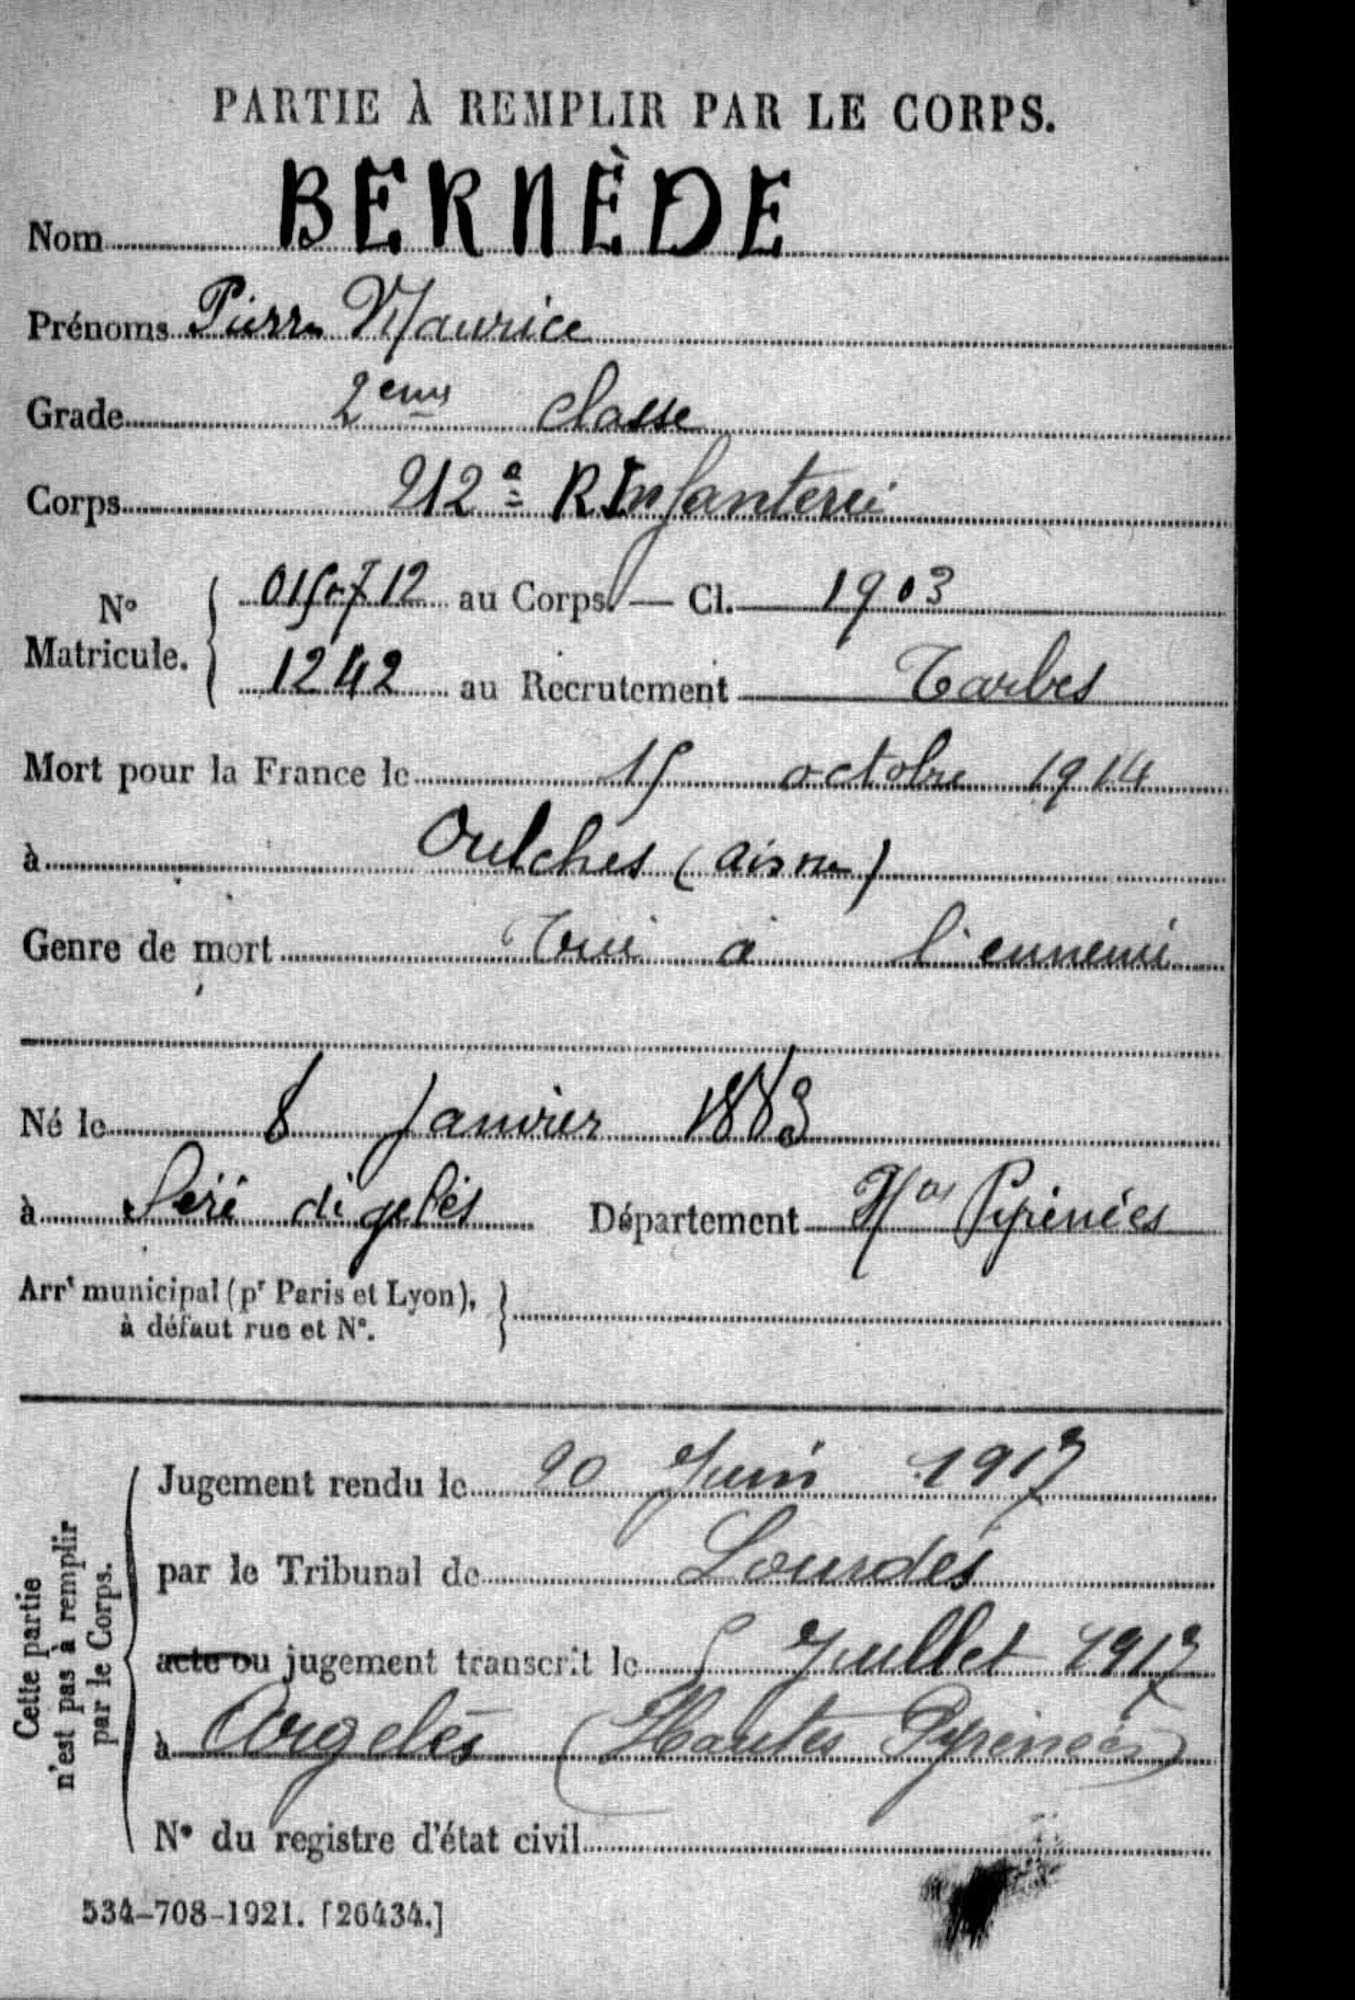 PARTIE À REMPLIR PAR LE CORPS.
Nom BERNÈDE
Prénoms Pierre Maurice
Grade 2eme classe
Corps 212e R Infanterie
N° Matricule.
au Corps. — Cl. 1903
1242 au Recrutement Tarbes
Mort pour la France le 15 octobre 1914
à Oulches (aisne)
Genre de mort Tué à l'ennemi
Né le 8 Janvier 1883
à Séré Département Htes Pyrénées
Arrt municipal (pr Paris et Lyon),
à défaut rue et N°.
Cette partie
n'est pas à remplir
par le Corps.
Jugement rendu le 20 Juin 1917
par le Tribunal de Lourdes
acte ou jugement transcrit le 5 Juillet 1917
à Argelès (Hautes Pyrénées)
N° du registre d'état civil
534-708-1921. [26434.]